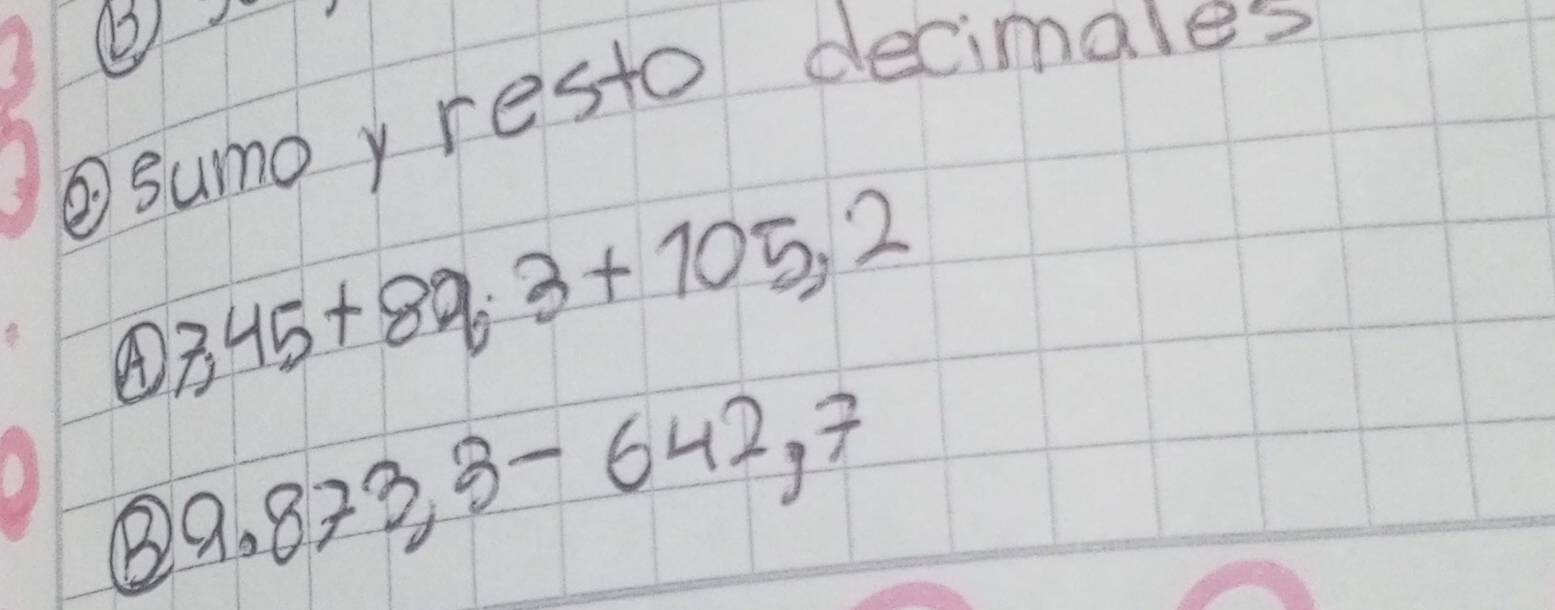 B
2. sumo y resto decimales
A 7,45 + 89,3 + 105,2
B 9.873,3 - 642,7